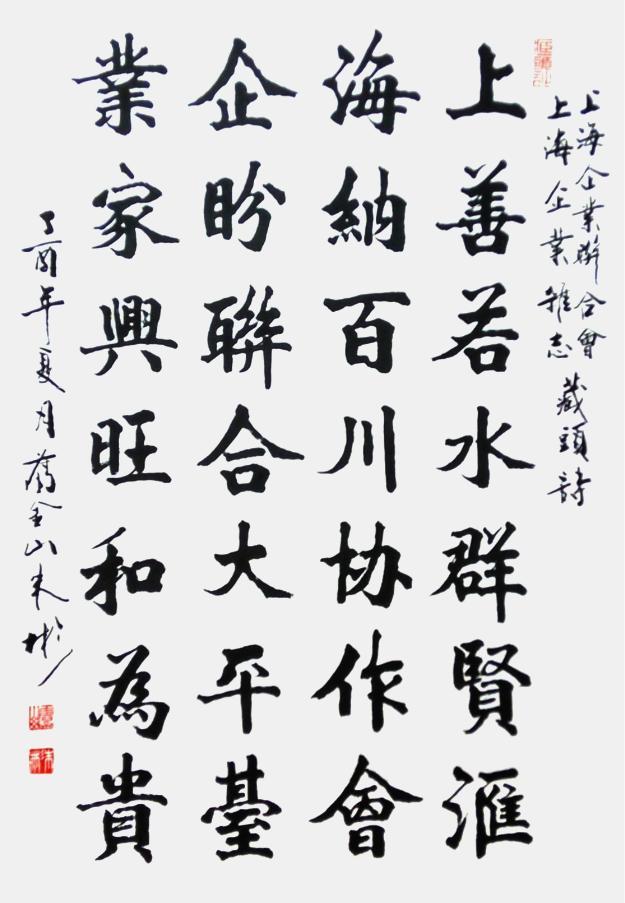 上海企業聯合會
上海企業雜志
藏頭詩
上善若水群賢滙
海納百川协作會
企盼聯合大平臺
業家興旺和為貴
丁酉年夏月舊金山朱彬